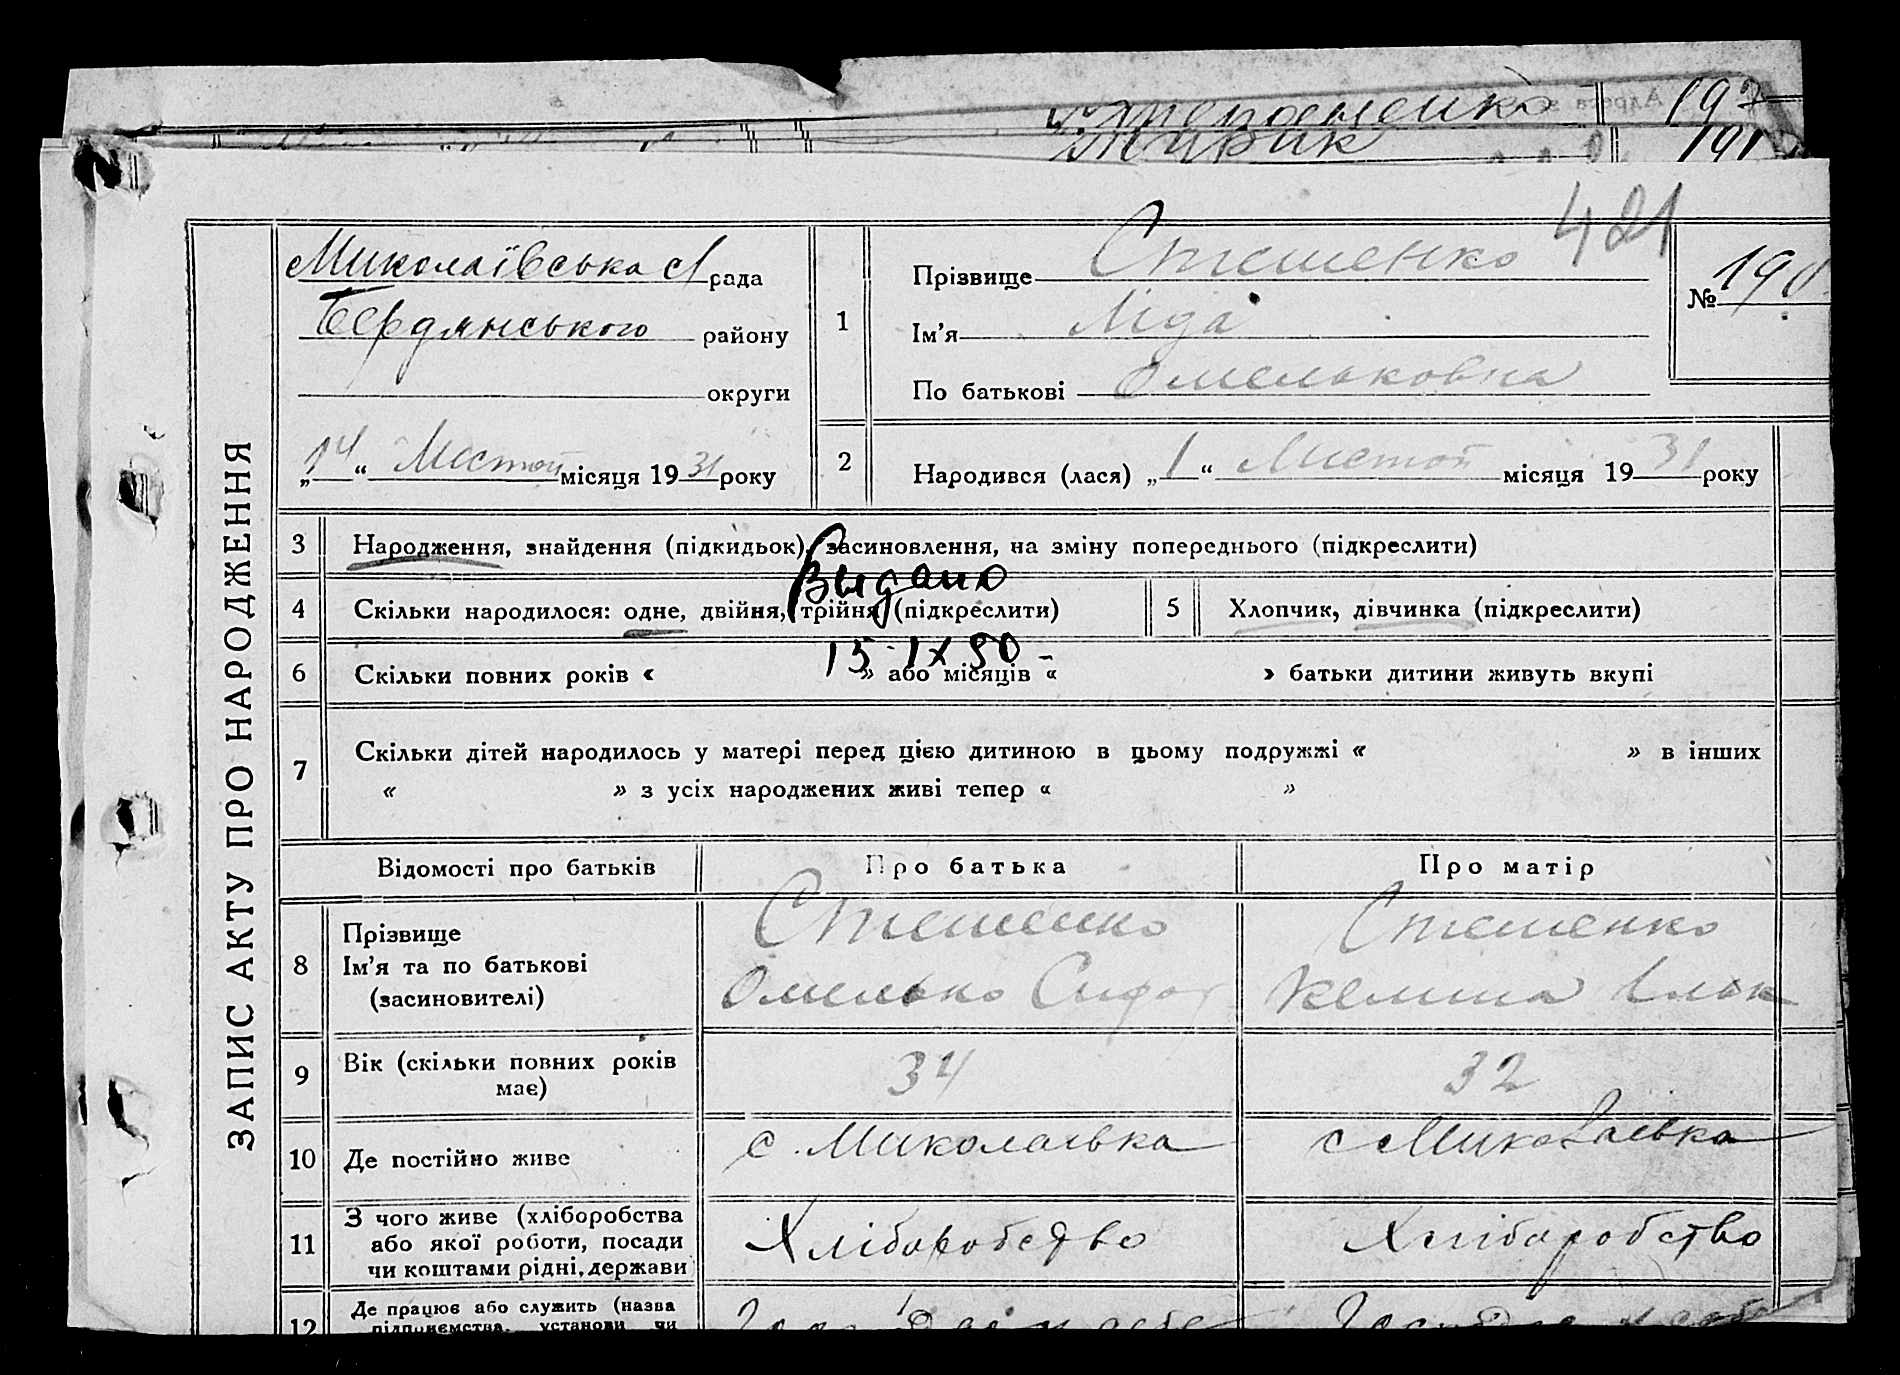 197
191
421
ЗАПИС АКТУ ПРО НАРОДЖЕННЯ
Миколаївська с/рада
Бердянського району
округи
„14“ Листоп місяця 1931 року
1
Прізвище Стешенко
Ім’я Ліда
По батькові Омельковна
№ 190
2
Народився (лася) „1“ Листоп місяця 1931 року
3 Народження, знайдення (підкидьок), засиновлення, на зміну попереднього (підкреслити)
Выдано
4 Скільки народилося: одне, двійня, трійня (підкреслити)
5 Хлопчик, дівчинка (підкреслити)
15 IX 50
6 Скільки повних років « » або місяців « » батьки дитини живуть вкупі
7 Скільки дітей народилось у матері перед цією дитиною в цьому подружжі « » в інших
« » з усіх народжених живі тепер « »
Відомості про батьків Про батька Про матір
8 Прізвище
Ім’я та по батькові
(засиновителі)
Стешенко
Омелько Сидор
Стешенко
9 Вік (скільки повних років
має)
34 32
10 Де постійно живе с. Миколаївка с Миколаївка
11 З чого живе (хліборобства
або якої роботи, посади
чи коштами рідні, держави
Хліборобство Хліборобство
12 Де працює або служить (назва
підприємства, установи чи